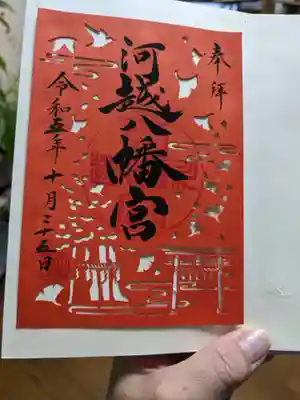 奉拝
河越八幡宮
令和五年十月二十五日